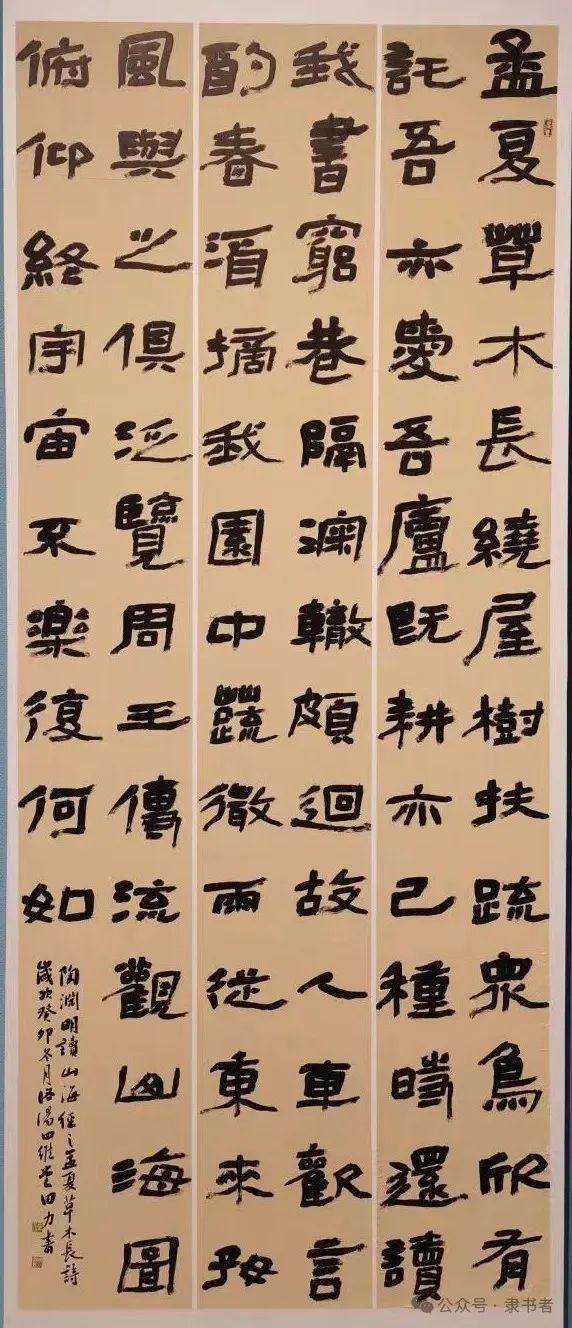 孟夏草木長繞屋樹扶疏眾鳥欣有
託吾亦愛吾廬既耕亦已種時還讀
我書窮巷隔深轍頗迴故人車歡言
酌春酒摘我園中蔬微雨從東來好
風與之俱泛覽周王傳流觀山海圖
俯仰終宇宙不樂復何如
陶淵明讀山海經之孟夏草木長詩
歲次癸卯冬月洛陽四維堂田力書
公众号·隶书者